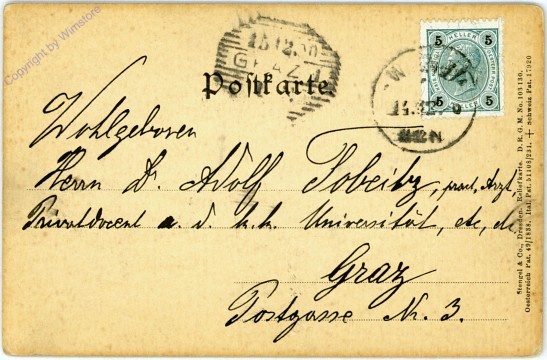 Copyright by Wimstore
15 12.00
GRAZ
5 HELLER 5
5 HELLER 5
Postkarte.
W
14.12.
Wohlgeboren
Herrn Dr. Adolf Tobeitz, pract. Arzt,
Privatdocent a. d. k.k. Universität, etc, etc,
Graz
Postgasse Nr. 3.
Stengel & Co., Dresden. Reliefkarte. D. R. G. M. No. 105 130.
Oesterreich Pat. 49/1838. Ital. Pat. + Schweiz Pat. 17020